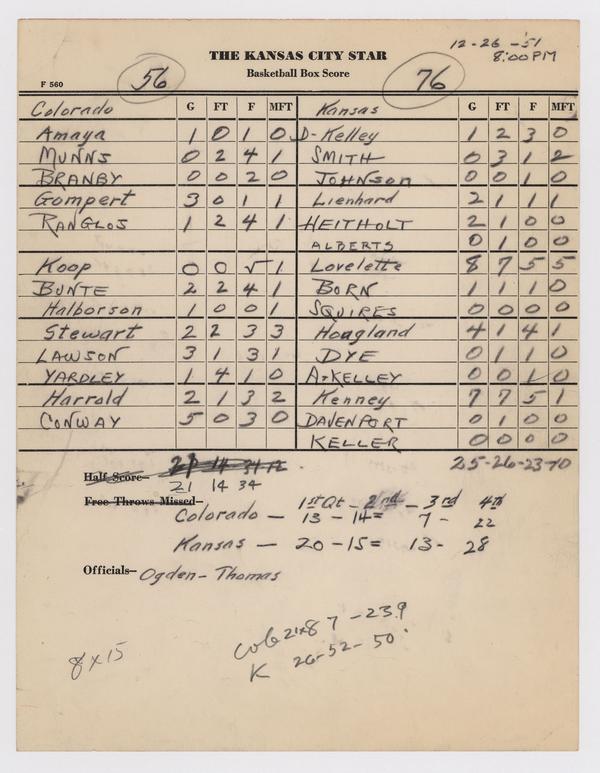 12-26-51
THE KANSAS CITY STAR 8:00 PM
56 Basketball Box Score 76
F 560
Colorado G FT F MFT Kansas G FT F MFT
Amaya 1 0 1 0 D-Kelley 1 2 3 0
MUNNS 0 2 4 1 SMITH 0 3 1 2
BRANBY 0 0 2 0 JOHNSON 0 0 1 0
Gompert 3 0 1 1 Lienhard 2 1 1 1
RANGLOS 1 2 4 1 HEITHOLT 2 1 0 0
ALBERTS 0 1 0 0
Koop 0 0 √ 1 Lovelette 8 7 5 5
BUNTE 2 2 4 1 BORN 1 1 1 0
Halborson 1 0 0 1 SQUIRES 0 0 0 0
Stewart 2 2 3 3 Hoagland 4 1 4 1
LAWSON 3 1 3 1 DYE 0 1 1 0
YARDLEY 1 4 1 0 A-KELLEY 0 0 1 0
Harrold 2 1 3 2 Kenney 7 7 5 1
CONWAY 5 0 3 0 DAVENPORT 0 1 0 0
KELLER 0 0 0 0
25-26-23-10
Half Score—
21 14 34
Free Throws Missed—
1st Qt - 2nd - 3rd 4th
Colorado — 13 - 14 = 7 - 22
Kansas — 20-15 = 13- 28
Officials— Ogden-Thomas
7 - 239
K 26-52-50
8 x 15